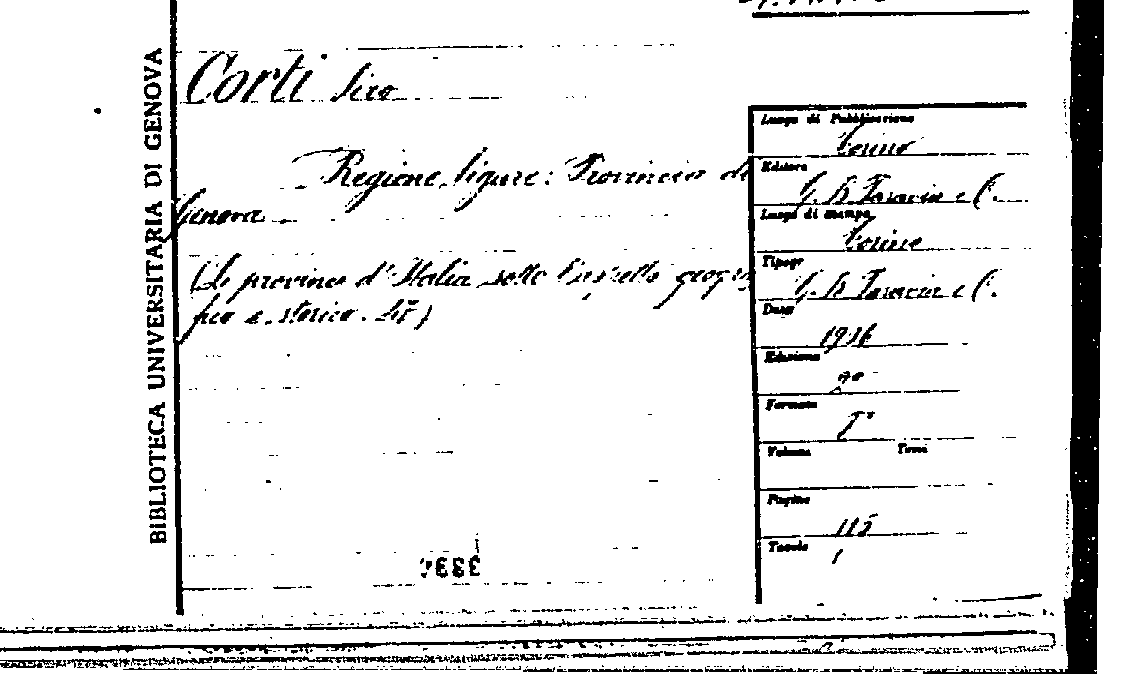 BIBLIOTECA UNIVERSITARIA DI GENOVA
Corti Siro
Regione ligure: Provincia di
Genova
(Le provincie d'Italia sotto l'aspetto geogra
fico e storico.
Luogo di Pubblicazione
Torino
Editore
G. B. Paravia e C.
Luogo di stampa
Torino
Tipogr
G. B. Paravia e C.
Data
Edizione
Formato
Volumi Tomi
Pagine
115
Tavole
1